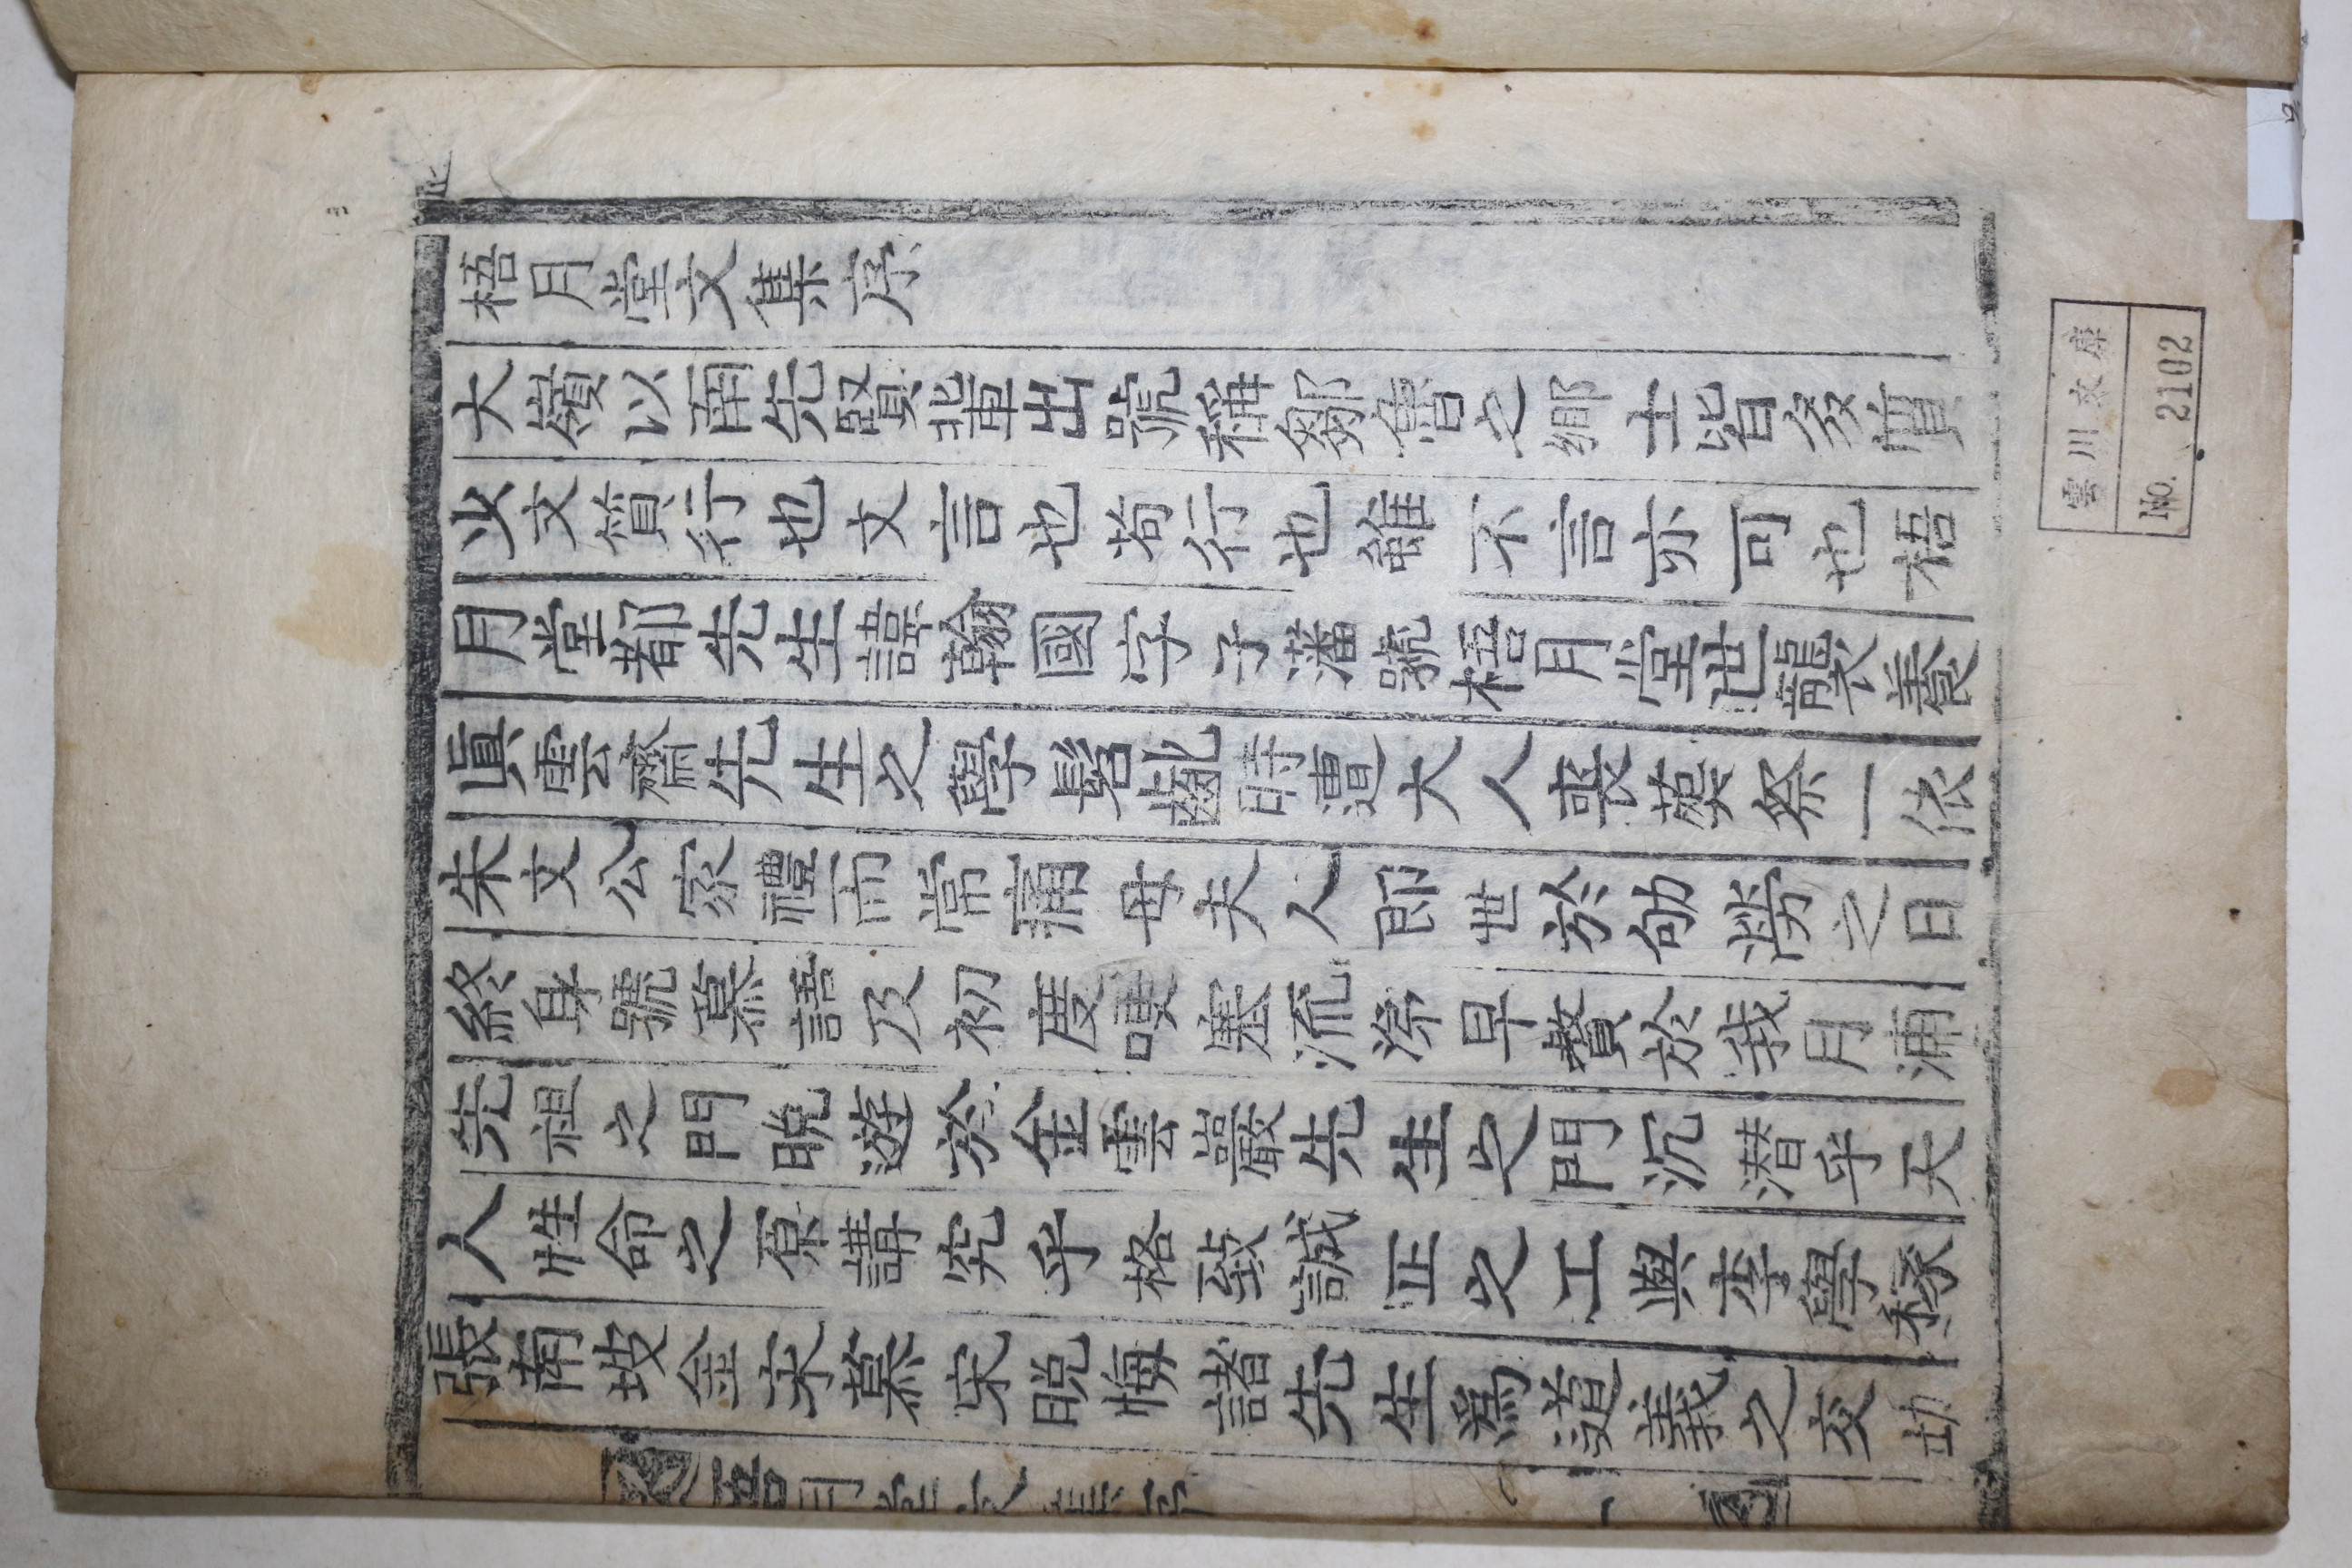 梧月堂文集序
大嶺以南先賢輩出號稱鄒魯之鄉士皆多質
少文質行也文言也苟行也雖不言亦可也梧
月堂都先生諱翰國字子藩號梧月堂世襲養
眞雲齋先生之學髫齔時遭大人喪葬祭一依
朱文公家禮而常痛母夫人即世於劬勞之日
終身號慕語及初度哽塞流涕早贅於我月浦
先祖之門晩遊於金雲巖先生之門沉潛乎天
人性命之原講究乎格致誠正之工與李學稼
張南坡金宋慕宋晩悔諸先生爲道義之交劼
梧月堂文集序
雲川文庫
No. 2102